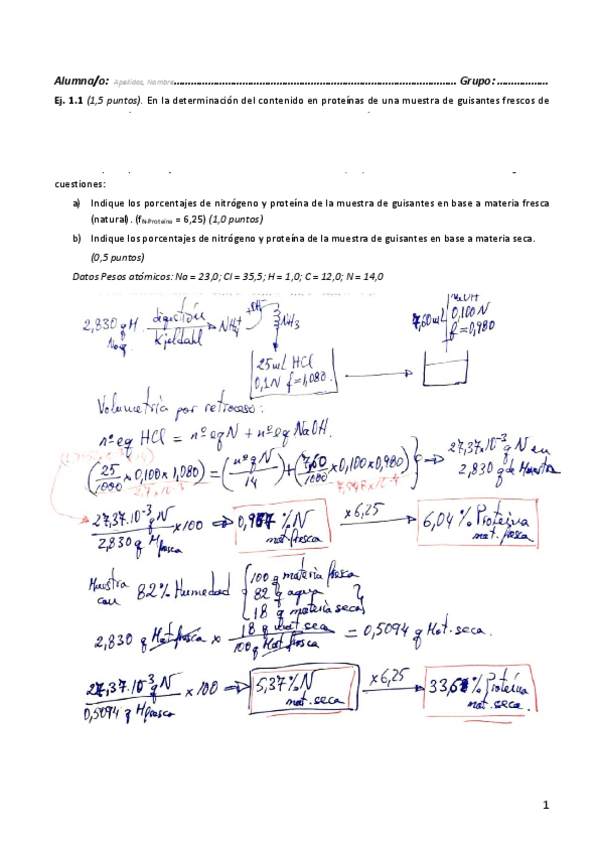 Alumna/o: Apellidos, Nombre.................................................................................................. Grupo: ..................
Ej. 1.1 (1,5 puntos). En la determinación del contenido en proteínas de una muestra de guisantes frescos de
cuestiones:
a) Indique los porcentajes de nitrógeno y proteína de la muestra de guisantes en base a materia fresca
(natural). (fN-Proteína = 6,25) (1,0 puntos)
b) Indique los porcentajes de nitrógeno y proteína de la muestra de guisantes en base a materia seca.
(0,5 puntos)
Datos Pesos atómicos: Na = 23,0; Cl = 35,5; H = 1,0; C = 12,0; N = 14,0
2,830 g M. digestión Kjeldahl NH4+ +OH- NH3
Norg.
25 mL HCl
0,1N f=1,080.
7,60 mL NaOH
0,100 N
f=0,980
Volumetría por retroceso:
nº eq HCl = nº eq N + nº eq NaOH.
(25/1000 x 0,100 x 1,080) = (nº g N/14) + (7,60/1000 x 0,100 x 0,980) 27,37x10-3 g N en
2,830 g de Muestra
2,7x10-3
27,37.10-3 g N / 2,830 g M fresca x 100 0,967 % N mat. fresca x 6,25 6,04 % Proteína mat. fresca
Muestra con 82% Humedad
100 g materia fresca
82 g agua
18 g materia seca
2,830 g Mat. fresca x 18 g mat. seca / 100 g Mat. fresca = 0,5094 g Mat. seca.
27,37.10-3 g N / 0,5094 g M fresca x 100 5,37 % N mat. seca x 6,25 Proteína mat. seca
1